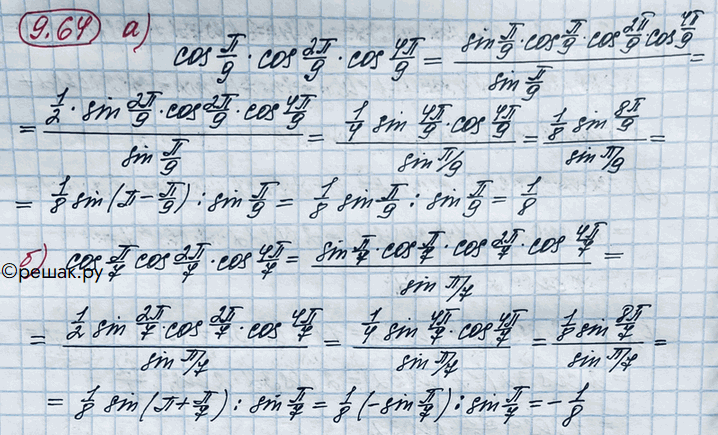 9.64 а)
cos π/9 · cos 2π/9 · cos 4π/9 = (sin π/9 · cos π/9 · cos 2π/9 cos 4π/9) / (sin π/9) =
= (1/2 · sin 2π/9 · cos 2π/9 · cos 4π/9) / (sin π/9) = (1/4 sin 4π/9 · cos 4π/9) / (sin π/9) = (1/8 sin 8π/9) / (sin π/9) =
= 1/8 sin(π - π/9) : sin π/9 = 1/8 sin π/9 : sin π/9 = 1/8
б) cos π/7 cos 2π/7 · cos 4π/7 = (sin π/7 · cos π/7 · cos 2π/7 · cos 4π/7) / (sin π/7) =
©решак.ру
= (1/2 sin 2π/7 · cos 2π/7 · cos 4π/7) / (sin π/7) = (1/4 sin 4π/7 · cos 4π/7) / (sin π/7) = (1/8 sin 8π/7) / (sin π/7) =
= 1/8 sin(π + π/7) : sin π/7 = 1/8 (- sin π/7) : sin π/7 = - 1/8